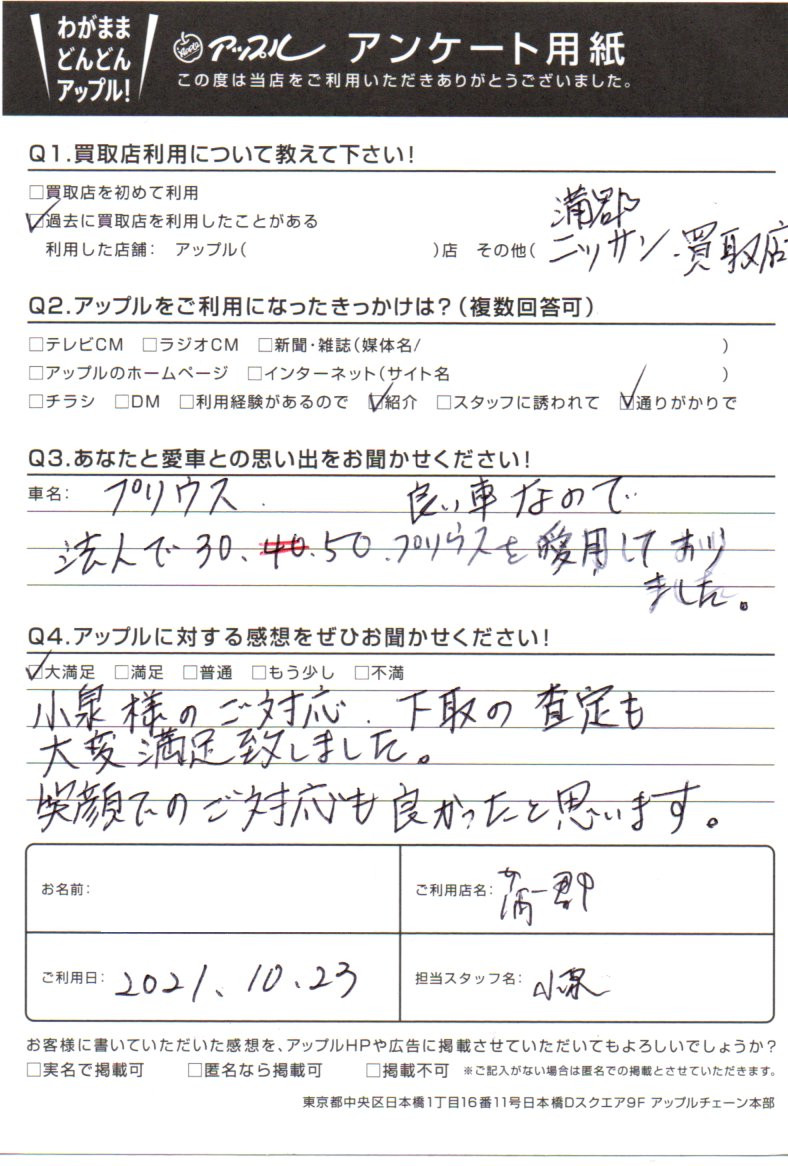 わがまま
どんどん
アップル!
アップル アンケート用紙
この度は当店をご利用いただきありがとうございました。
Q1.買取店利用について教えて下さい!
□買取店を初めて利用
☑過去に買取店を利用したことがある
利用した店舗: アップル( )店 その他( 蒲郡
ニッサン.買取店
Q2.アップルをご利用になったきっかけは?(複数回答可)
□テレビCM □ラジオCM □新聞・雑誌(媒体名/ )
□アップルのホームページ □インターネット(サイト名 )
□チラシ □DM □利用経験があるので ☑紹介 □スタッフに誘われて ☑通りがかりで
Q3.あなたと愛車との思い出をお聞かせください!
車名: プリウス. 良い車なので
法人で30、40.50.プリウスを愛用しており
ました。
Q4.アップルに対する感想をぜひお聞かせください!
☑大満足 □満足 □普通 □もう少し □不満
小泉様のご対応.下取の査定も
大変満足致しました。
笑顔でのご対応も良かったと思います。
お名前:
ご利用店名: 蒲郡
ご利用日: 2021、10、23
担当スタッフ名: 小泉
お客様に書いていただいた感想を、アップルHPや広告に掲載させていただいてもよろしいでしょうか?
□実名で掲載可 □匿名なら掲載可 □掲載不可 ※ご記入がない場合は匿名での掲載とさせていただきます。
東京都中央区日本橋1丁目16番11号日本橋Dスクエア9F アップルチェーン本部